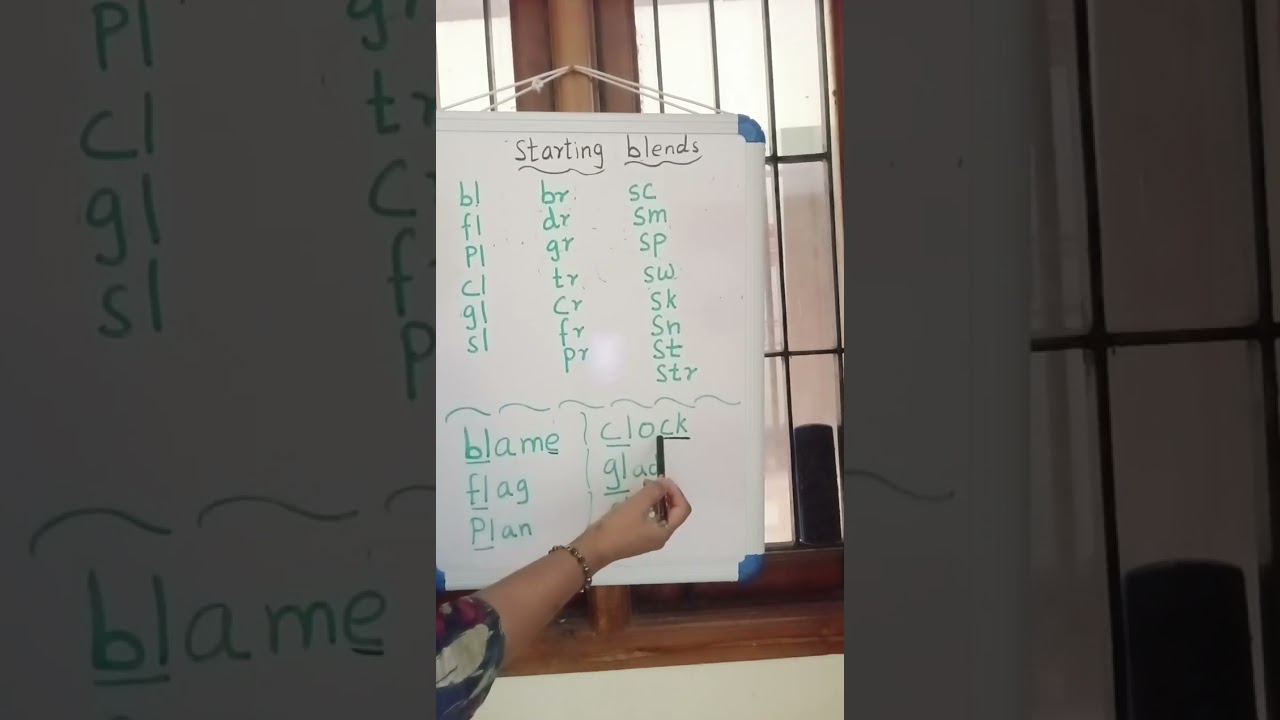 Starting blends
bl br sc
fl dr sm
pl gr sp
cl tr sw
gl cr sk
sl fr sn
pr st
str
blame clock
flag glad
plan